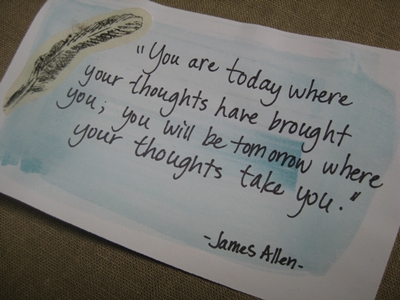 "You are today where
your thoughts have brought
you; you will be tomorrow where
your thoughts take you."
-James Allen-